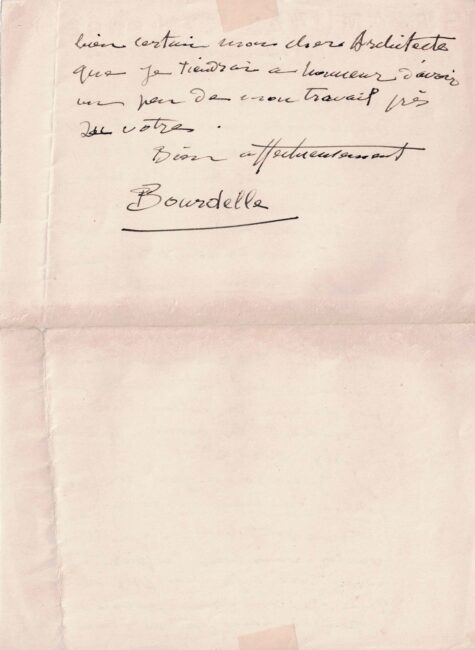 bien certain mon cher Architecte
que je tiendrai à honneur d'avoir
un peu de mon travail près
du votre.
Bien affectueusement
Bourdelle